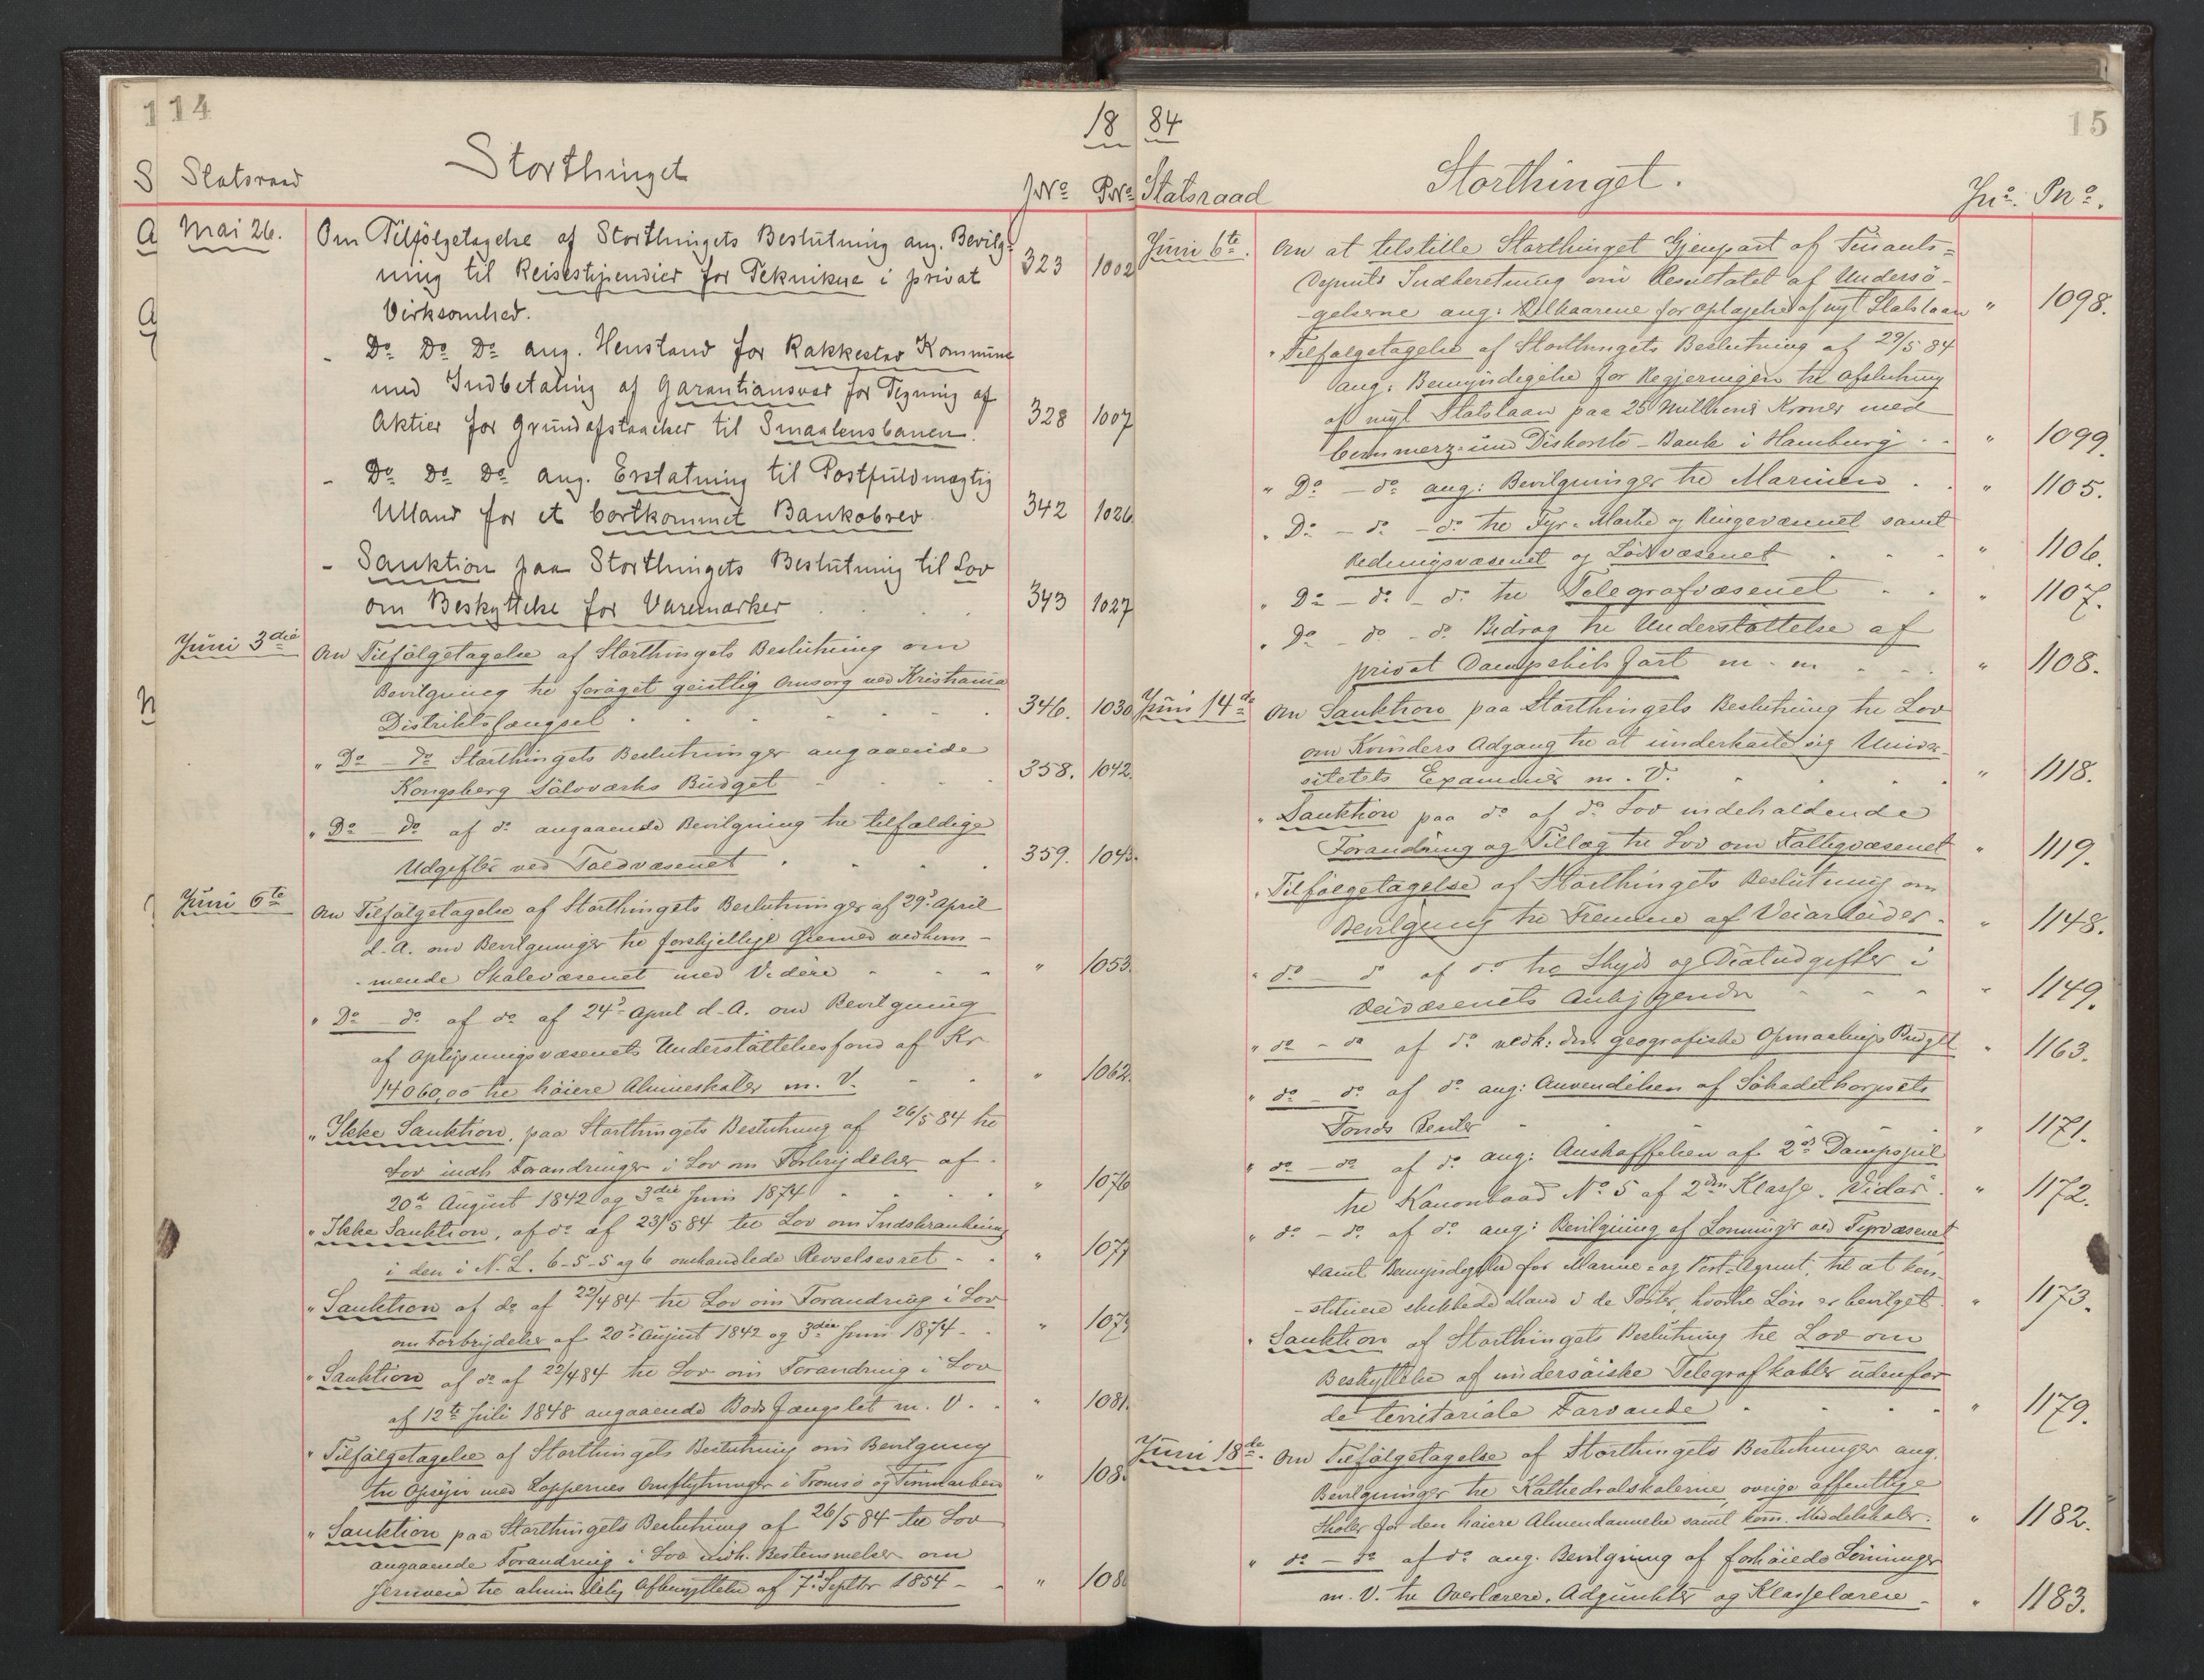 114
18
Storthinget
S Statsraad
JNo PNo
A Mai 26. Om Tilfölgetagelse af Storthingets Beslutning ang. Bevilg-
ning til Reisestipendier for Teknikere i privat 323 1002
A
Virksomhed.
- Do Do Do ang. Henstand for Rakkestad Kommune
med Indbetaling af Garantiansvar for Tegning af
Aktier for Grundafstaaelser til Smaalensbanen. 328 1007
- Do Do Do ang. Erstatning til Postfuldmægtig
Ulland for et bortkommet Bankobrev 342 1026
- Sanktion paa Storthingets Beslutning til Lov
om Beskyttelse for Varemærker 343 1027
Juni 3die Om Tilfölgetagelse af Storthingets Beslutning om
Bevilgning til foröget geistlig Omsorg ved Kristiania
N
Distriktsfængsel 346. 1030
" Do - do Storthingets Beslutninger angaaende
Kongsberg Sölvværks Budget 358. 1042.
" Do - do af do angaaende Bevilgning til tilfældige
Udgifter ved Toldvæsenet 359. 1043.
Juni 6te Om Tilfölgetagelse af Storthingets Beslutninger af 29. April
d. A. om Bevilgninger til forskjellige Öiemed vedkom-
mende Skolevæsenet med Videre " 1053.
" Do - do af do af 24d April d. A. om Bevilgning
af Oplysningsvæsenets Understöttelsesfond af Kr
14060,00 til höiere Almueskoler m. V. " 1062.
" Ikke Sanktion, paa Storthingets Beslutning af 26/5 84 til
Lov indh. Forandringer i Lov om Forbrydelser af
20de August 1842 og 3die Juni 1874 " 1076
" Ikke Sanktion, af do af 23/5 84 til Lov om Indskrænkning
i den i N. L. 6-5-5 og 6 omhandlede Revselsesret " 1077
" Sanktion af do af 22/4 84 til Lov om Forandring i Lov
om Forbrydelser af 20de August 1842 og 3die Juni 1874 " 1079
" Sanktion af do af 22/4 84 til Lov om Forandring i Lov
af 12te Juli 1848 angaaende Bodsfængslet m. V. " 1081.
" Tilfölgetagelse af Storthingets Beslutning om Bevilgning
til Opsyn med Lappernes Omflytninger i Tromsö og Finmarken " 108
" Sanktion paa Storthingets Beslutning af 26/5 84 til Lov
angaaende Forandring i Lov indh. Bestemmelser om
Jernveie til almindelig Afbenyttelse af 7. Septbr 1854 " 108
84
15
Storthinget.
Statsraad
Jno. Pno.
Juni 6te. Om at tilstille Storthinget Gjenpart af Finants-
Depmts Indberetning om Resultatet af Undersö-
gelserne ang: Vilkaarene for Optagelse af nyt Statslaan " 1098.
" Tilfölgetagelse af Storthingets Beslutning af 29/5 84
ang: Bemyndigelse for Regjeringen til Afslutning
af nyt Statslaan paa 25 Millioner Kroner med
Commerz- und Diskonto-Bank i Hamburg " 1099.
" Do - do ang: Bevilgninger til Marinen " 1105.
" Do - do - do til Fyr- Mærke og Ringevæsenet samt
Redningsvæsenet og Lodsvæsenet " 1106.
" Do - do - do til Telegrafvæsenet " 1107.
" Do - do - do Bidrag til Understöttelse af
privat Dampskibsfart m. m. " 1108.
Juni 14de Om Sanktion paa Storthingets Beslutning til Lov
om Kvinders Adgang til at underkaste sig Univer-
sitetets Examiner m. V. " 1118.
" Sanktion paa do af do Lov indeholdende
Forandring og Tillæg til Lov om Fattigvæsenet " 1119.
" Tilfölgetagelse af Storthingets Beslutning om
Bevilgning til Fremme af Veiarbeider " 1148.
" do - do af do til Skyds og Diætudgifter i
Veivæsenets Anliggender " 1149.
" do - do af do vedk: den geografiske Opmaalings Budget " 1163.
" do - do af do ang: Anvendelsen af Sökadetkorpsets
Fonds Renter " 1171.
" do - do af do ang: Anskaffelsen af 2de Dampspil
til Kanonbaad No 5 af 2den Klasse "Vidar" " 1172.
" do - do af do ang: Bevilgning af Lönninger ved Fyrvæsenet
samt Bemyndigelse for Marine- og Post-Dpmt. til at kon-
stituere skikkede Mænd i de Poster, hvortil Lön er bevilget " 1173.
" Sanktion af Storthingets Beslutning til Lov om
Beskyttelse af undersöiske Telegrafkabler udenfor
de territoriale Farvande " 1179.
Juni 18de. Om Tilfölgetagelse af Storthingets Beslutninger ang.
Bevilgninger til Kathedralskolerne, övrige offentlige
Skoler for den höiere Almendannelse samt kom. Middelskoler. " 1182.
" do - do af do ang. Bevilgning af forhöiede Lönninger
m. V. til Overlærere, Adjunkter og Klasselærere " 1183.